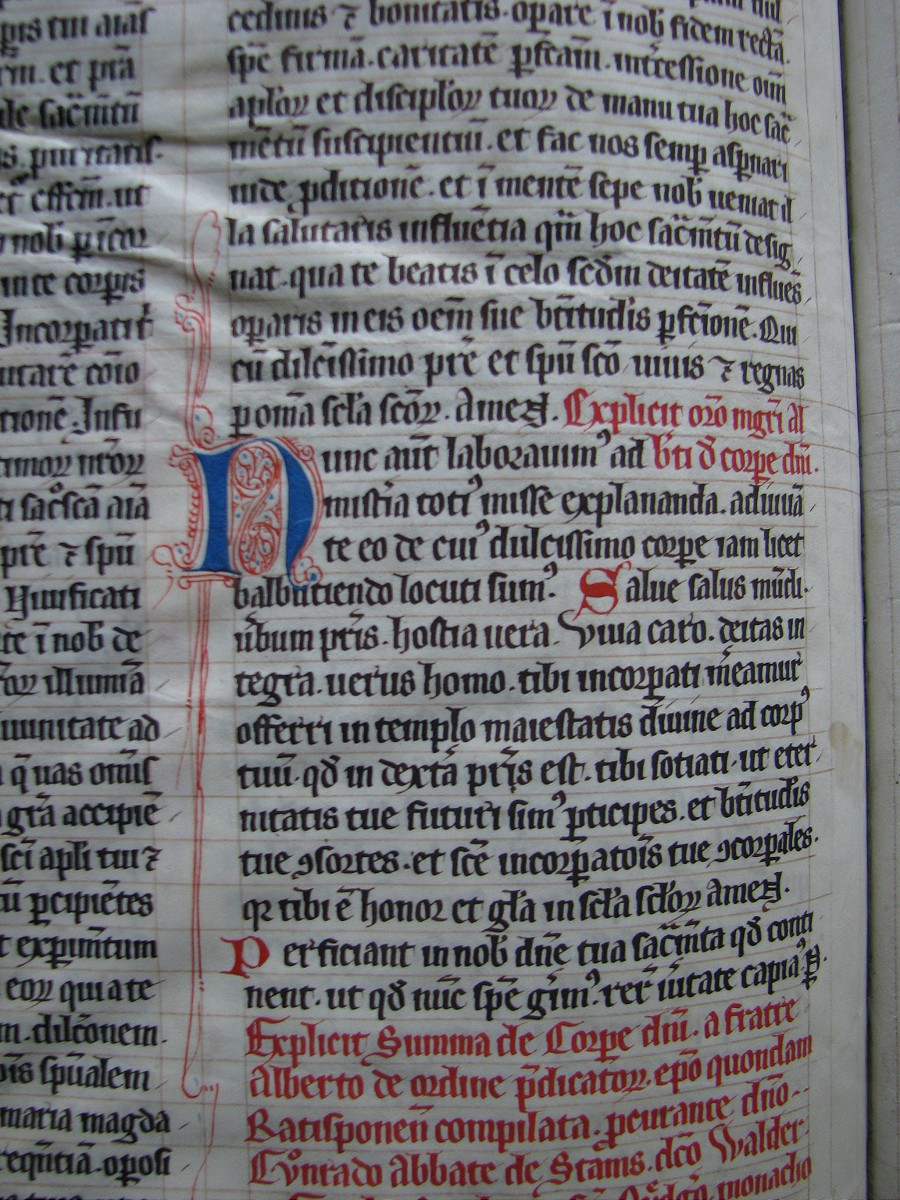 pris tui aias
rm. et pra
de sac̄mtū
s. puritatis.
et effcm. ut
nob̄ p̱icor
in te corp̱is
Incorp̱ati
utare cōio
tionē. Infu
timoꝝ nr̄oꝝ
ti sac̄sc̄a aīa
pr̄e ⁊ spū
Viuificati
te ī nob̄ de
illumīa
unitate ad
q̄uas om̄is
gr̄a accipiē
sc̄i apl̄i tui ⁊
ū p̱cipiētes
t exp̱imtum
eoꝝ qui a te
m. dilc̄onem.
sp̄ualem
maria magda
req̄ntiā. oposi
cedinis ⁊ bonitatis. opare ī nob̄ fidem rectā.
spē firmā. caritatē ꝑfcām. int̄cessione oīm
apl̄oꝝ et discipl̄oꝝ tuoꝝ de manu tua hoc sac̄
mētū suscipientiū. et fac nos semꝑ asp̄nari
iude ꝑditionē. et ī mentē sepe nob̄ ueniat il
la salutaris influētia q̄m hoc sac̄mtū desig
nat. qua te beatis ī celo scd̄m deitatē influēs
oꝑaris in eis oēm sue bt̄itudīs ꝑfc̄ionē. Qui
cū dilc̄issimo pr̄e et spū sc̄o uiuis ⁊ regnas
ꝑ om̄a scl̄a scl̄oꝝ. Amen. Explicit oro mgr̄i al
Nunc aūt laborauimꝰ ad b̄ti d̄ corꝑe dn̄i.
mistia totiꝰ misse explananda. adiuuā
te eo de cuiꝰ dulcissimo corꝑe iam licet
balbutiendo locuti sumꝰ. Salue salus mūdi.
u̇bum pr̄is. hostia uera. Viua caro. deitas in
tegra. uerus homo. tibi incorꝑati m̄eamur
offerri in templo maiestatis diuine ad corpꝰ
tuū. qd̄ in dext̄a pr̄is est. tibi sotiati. ut eter
nitatis tue futuri simꝰ ꝑticipes. et bt̄itudīs
tue ꝯsortes. et sc̄e incorꝑatoīs tue ꝯcorꝑales.
qꝛ tibi ē honor et gl̄a in scl̄a scl̄oꝝ amen.
Perficiant in nob̄ dn̄e tua sac̄mta qd̄ conti
nent. ut qd̄ nūc spē gimꝰ. rer̄ u̇itate capiaꝰ. ꝑ.
Explicit Summa de Corꝑe dn̄i. a fratre
Alberto de ordine p̄dicatoꝝ. ep̄o quondam
Ratisponen̄ compilata. ꝓcurante dn̄o
Cůnrado abbate de Stams. dc̄o Walder
monacho